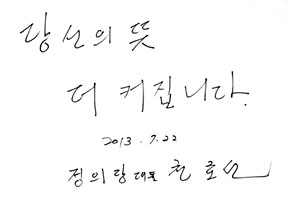 당신의 뜻
더 커집니다.
2013. 7.22
정의당 대표 천 호선